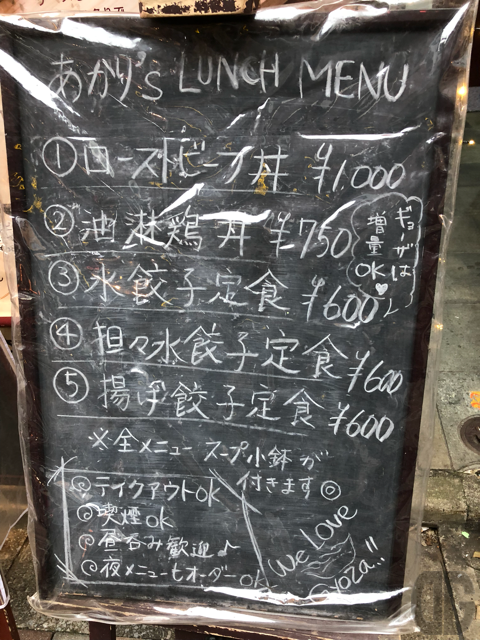 あかり's LUNCH MENU
① ローストビーフ丼 ¥1,000
② 油淋鶏丼 ¥750
ギョーザは
増量
OK♡
③ 水餃子定食 ¥600
④ 担々水餃子定食 ¥600
⑤ 揚げ餃子定食 ¥600
※全メニュー スープ小鉢が
付きます◎
◎テイクアウトok
◎喫煙ok
◎昼呑み歓迎♪
◎夜メニューもオーダーok
We Love
Gyoza!!